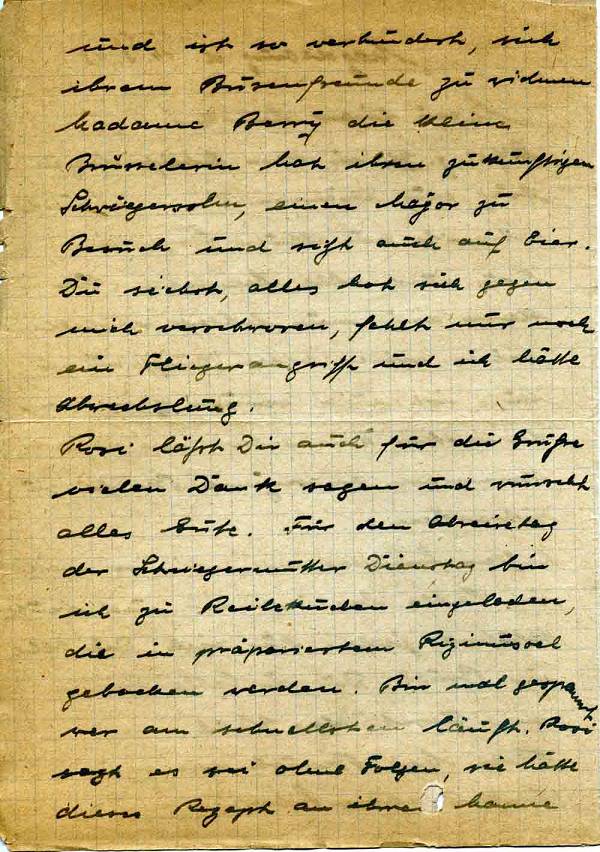 und ist so verhindert, sich
ihrem Busenfreunde zu widmen
Madame Berry die kleine
Brüsselerin hat ihren zukünftigen
Schwiegersohn, einen Major zu
Besuch und sitzt auch auf Eier.
Du siehst, alles hat sich gegen
mich verschworen, fehlt nur noch
ein Fliegerangriff und ich hätte
Abwechslung.
Rosi läßt Dir auch für die Grüße
vielen Dank sagen und wünscht
alles Gute. Für den Abreisetag
der Schwiegermutter Dienstag bin
ich zu Reibekuchen eingeladen,
die in präpariertem Rizinusoel
gebacken werden. Bin mal gespannt
wer am schnellsten läuft. Rosi
sagt es sei ohne Folgen, sie hätte
dieses Rezept an ihrem Manne